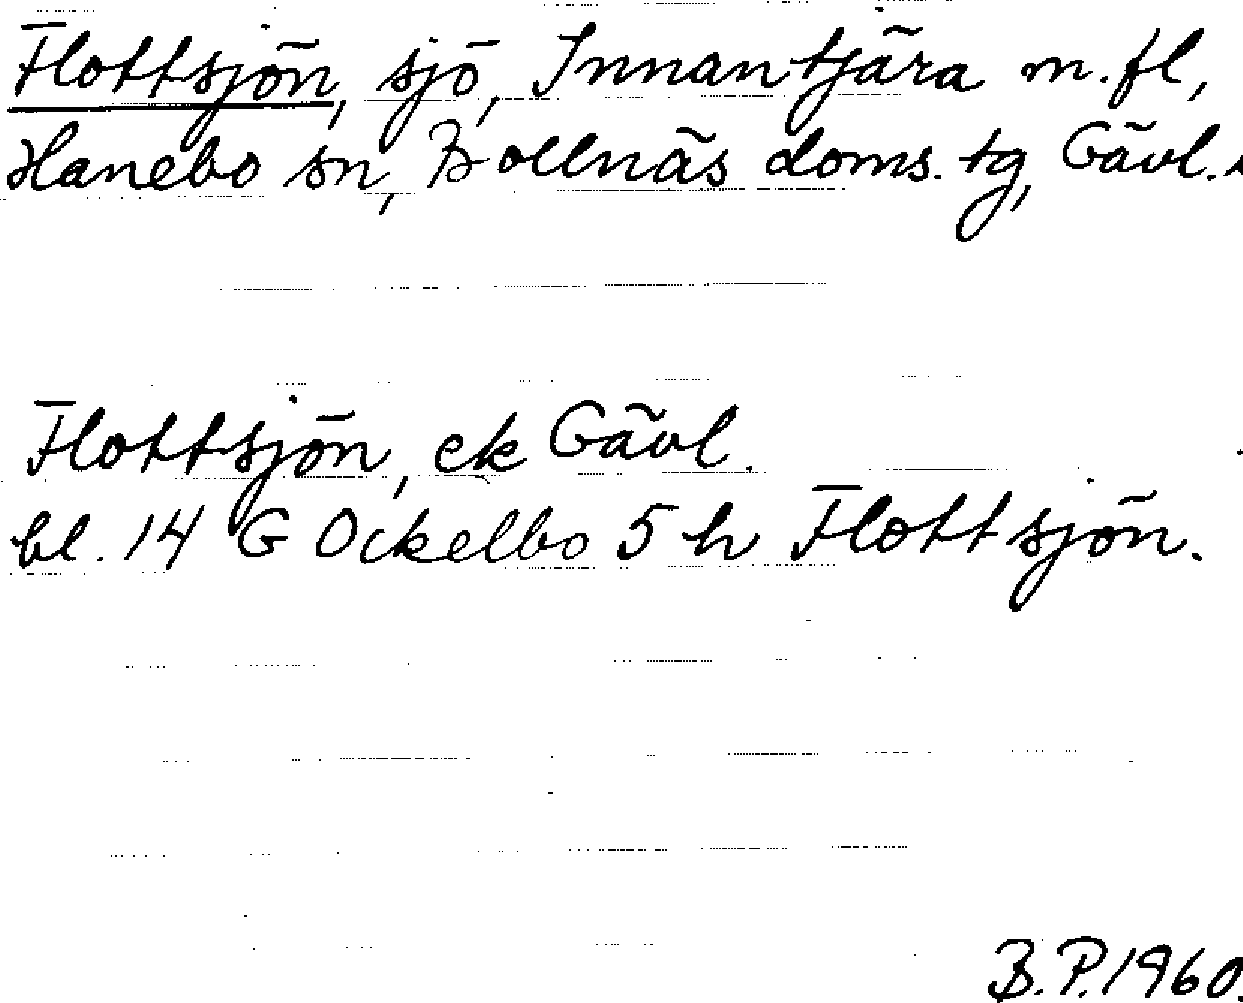 Flottsjön, sjö, Innantjära m.fl,
Hanebo sn, Bollnäs doms. tg, Gävl.
Flottsjön, ek Gävl.
bl. 14 G Ockelbo 5 h Flottsjön.
B.P. 1960.